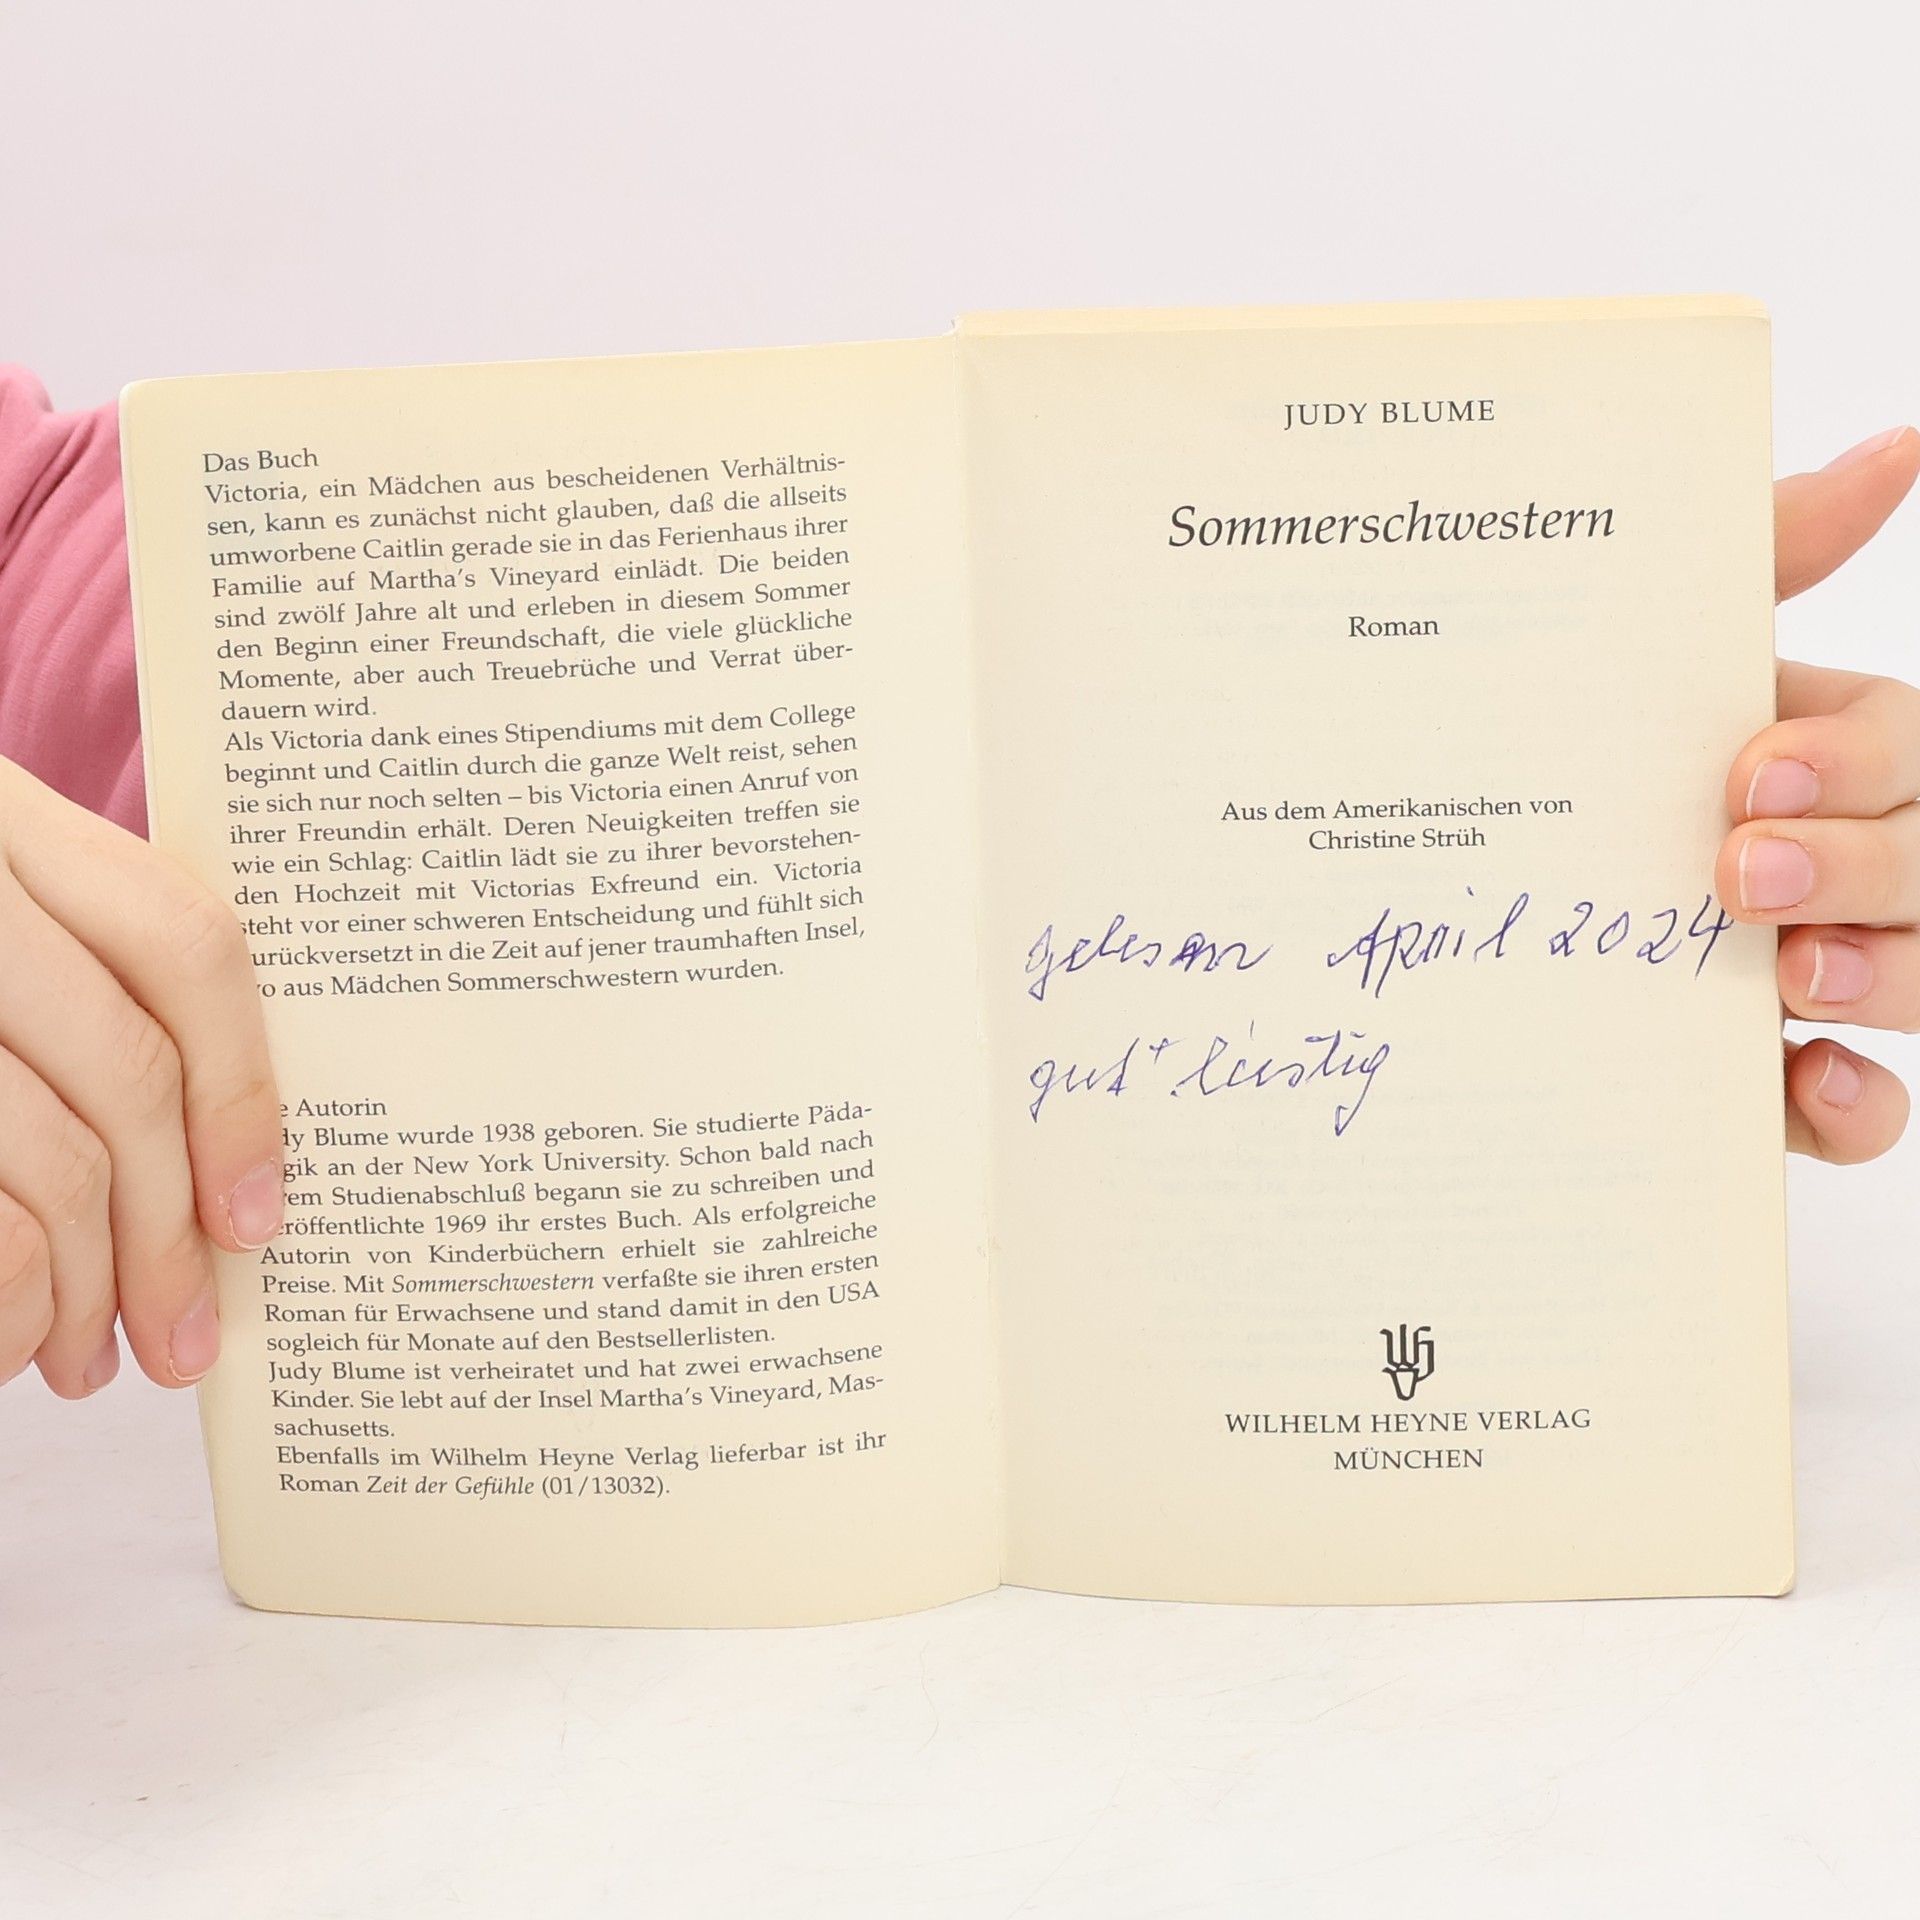 Das Buch
Victoria, ein Mädchen aus bescheidenen Verhältnis-
sen, kann es zunächst nicht glauben, daß die allseits
umworbene Caitlin gerade sie in das Ferienhaus ihrer
Familie auf Martha's Vineyard einlädt. Die beiden
sind zwölf Jahre alt und erleben in diesem Sommer
den Beginn einer Freundschaft, die viele glückliche
Momente, aber auch Treuebrüche und Verrat über-
dauern wird.
Als Victoria dank eines Stipendiums mit dem College
beginnt und Caitlin durch die ganze Welt reist, sehen
sie sich nur noch selten – bis Victoria einen Anruf von
ihrer Freundin erhält. Deren Neuigkeiten treffen sie
wie ein Schlag: Caitlin lädt sie zu ihrer bevorstehen-
den Hochzeit mit Victorias Exfreund ein. Victoria
steht vor einer schweren Entscheidung und fühlt sich
urückversetzt in die Zeit auf jener traumhaften Insel,
o aus Mädchen Sommerschwestern wurden.
e Autorin
dy Blume wurde 1938 geboren. Sie studierte Päda-
gik an der New York University. Schon bald nach
rem Studienabschluß begann sie zu schreiben und
eröffentlichte 1969 ihr erstes Buch. Als erfolgreiche
Autorin von Kinderbüchern erhielt sie zahlreiche
Preise. Mit Sommerschwestern verfaßte sie ihren ersten
Roman für Erwachsene und stand damit in den USA
sogleich für Monate auf den Bestsellerlisten.
Judy Blume ist verheiratet und hat zwei erwachsene
Kinder. Sie lebt auf der Insel Martha's Vineyard, Mas-
sachusetts.
Ebenfalls im Wilhelm Heyne Verlag lieferbar ist ihr
Roman Zeit der Gefühle (01/13032).
JUDY BLUME
Sommerschwestern
Roman
Aus dem Amerikanischen von
Christine Strüh
gelesen April 2024
gut + lustig
WILHELM HEYNE VERLAG
MÜNCHEN